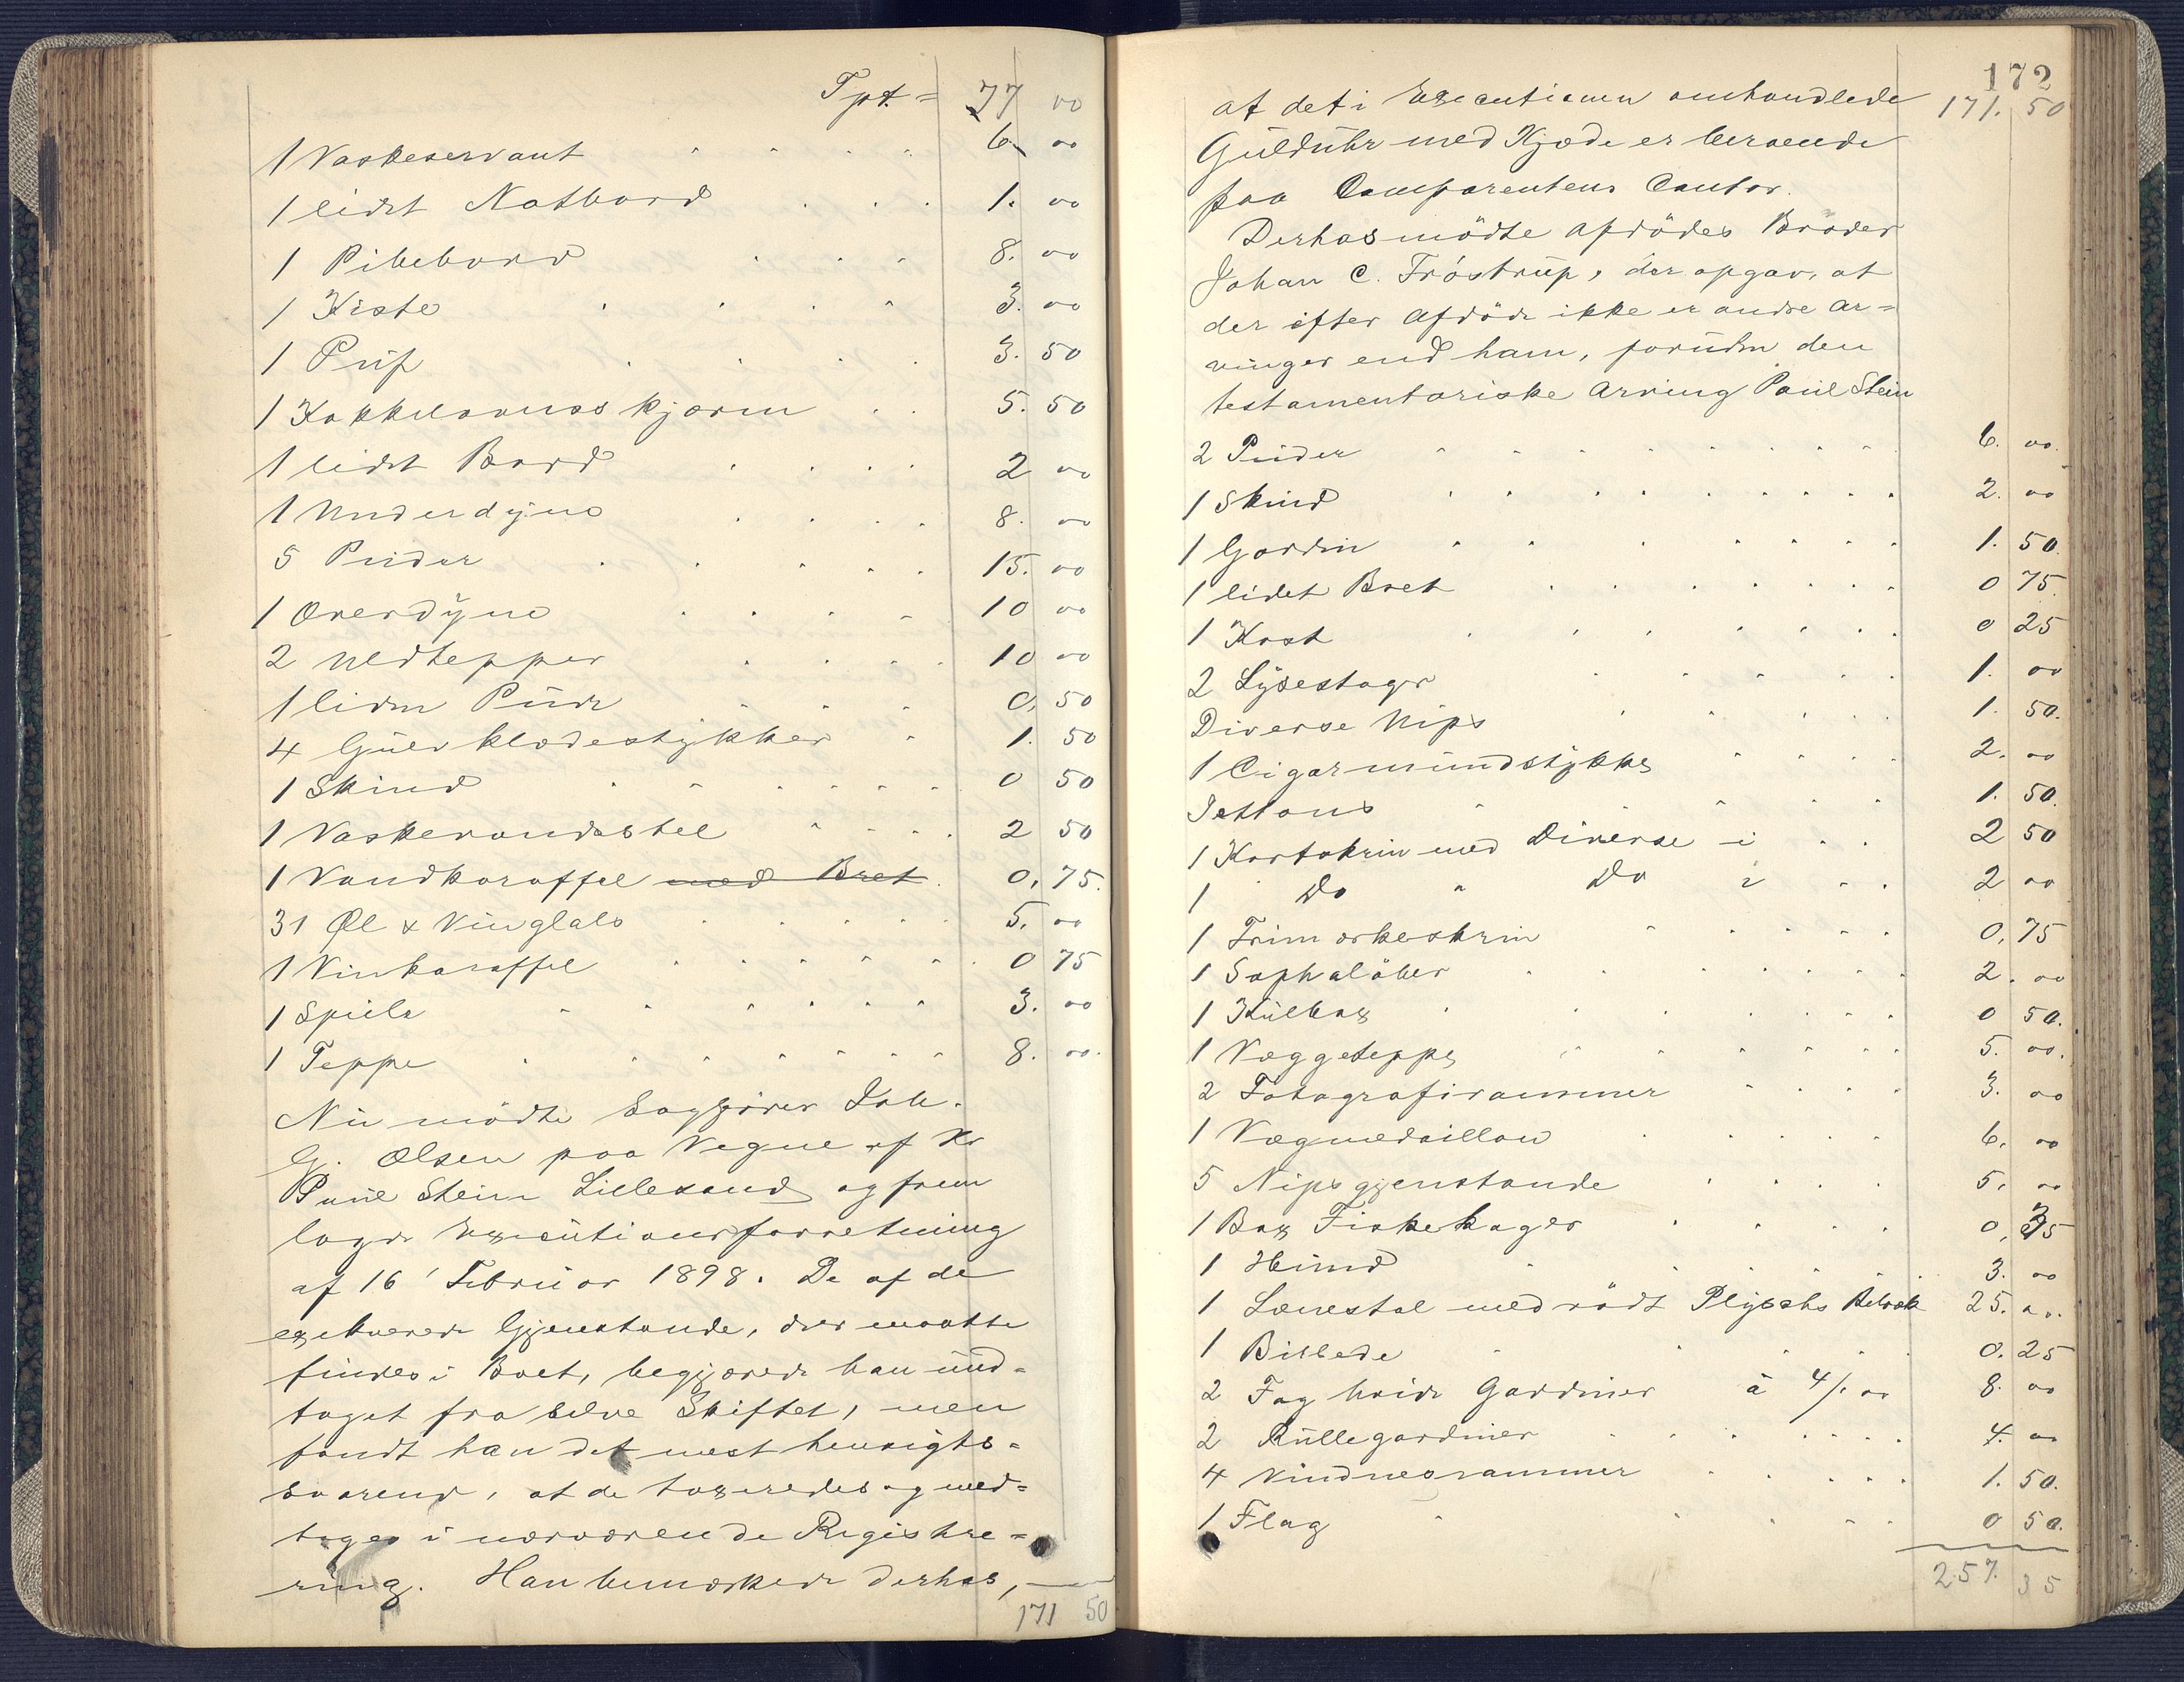 Tpt. = 77 00
1 Vaskeservant 6. 00
1 lidet Natbord 1. 00
1 Pibebord 8. 00
1 Kiste 3. 00
1 Puf 3. 50
1 Kakkelovnsskjærm 5. 50
1 lidet Bord 2 00
1 Underdyne 8. 00
5 Puder 15. 00
1 Overdyne 10 00
2 Uldtepper 10 00
1 liden Pude 0, 50
4 Gulvklædestykker 1. 50
1 Skind 0 50
1 Vaskevandsstel 2 50
1 Vandkaraffel med Bret 0, 75.
31 Øl & Vinglas 5. 00
1 Vinkaraffel 0 75
1 Speile 3. 00
1 Teppe 8. 00.
Nu mödte Sagfører Joh.
G. Olsen paa Vegne af Hr
Paul Stein Lillesand og frem
lagde Executionsforretning
af 16' Februar 1898. De af de
exekverede Gjenstande, der maatte
findes i Boet, begjærede han und-
taget fra selve Skiftet, men
fandt han det mest hensigts-
svarend, at de taxeredes og med-
toges i nærværende Registre-
ring. Han bemærkede derhos,
171 50
172
at det i Executionen omhandlede 171. 50
Guldühr med Kjæde er beroende
paa Comparentens Contor.
Derhos mödte Afdödes Broder
Johan C. Fröstrup, der opgav, at
der efter Afdöde ikke er andre ar-
vinger end ham, foruden den
testamentariske Arving Paul Stein
2 Puder 6. 00.
1 Skind 2. 00
1 Gardin 1. 50.
1 lidet Bret 0 75.
1 Kost 0 25
2 Lysestager 1. 00
Diverse Nips 1. 50.
1 Cigarmundstykke 2. 00
Jettons 1. 50.
1 Kortskrin med Diverse i 2 50
1 Do " Do i 2 00
1 Frimærkeskrin 0, 75
1 Sophalöber 2. 00
1 Kulbox 0 50.
1 Væggeteppe 5. 00.
2 Fotografirammer 3. 00
1 Vægmedaillon 6. 00
5 Nipsgjenstande 5. 00
1 Box Fiskekager 0, 35
1 Hund 3. 00
1 Lænestol med rödt Plyschs Betræk 25. 00.
1 Billede 0. 25
2 Fag hvide Gardiner à 4/. 00 8. 00
2 Rullegardiner 4. 00
4 Vinduesrammer 1. 50.
1 Flag 0 50.
257. 35